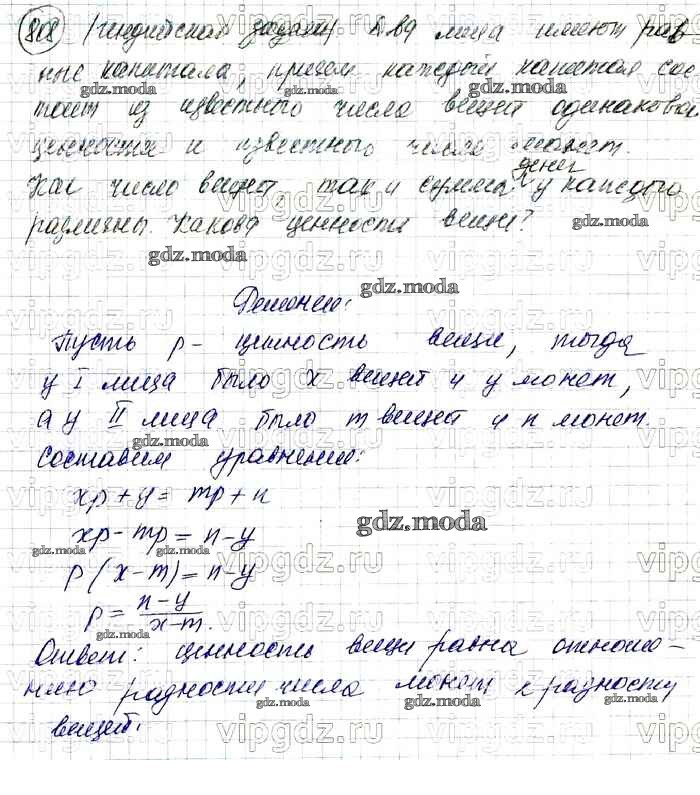 808 (индийская задача) Два лица имеют рав
ные капитала, причем каждый капитал сос
тоит из известного числа вещей одинаковой
ценности и известного числа монет.
Как число вещей, так и сумма денег у каждого
различны. Какова ценность вещи?
Решение:
Пусть p - ценность вещи, тогда
у I лица было x вещей и y монет,
а у II лица было m вещей и n монет.
Составим уравнение:
xp + y = mp + n
xp - mp = n - y
p(x - m) = n - y
p = n - y / x - m.
Ответ: ценность вещи равна отноше-
нию разности числа монет к разности
вещей.
gdz.moda
vipgdz.ru